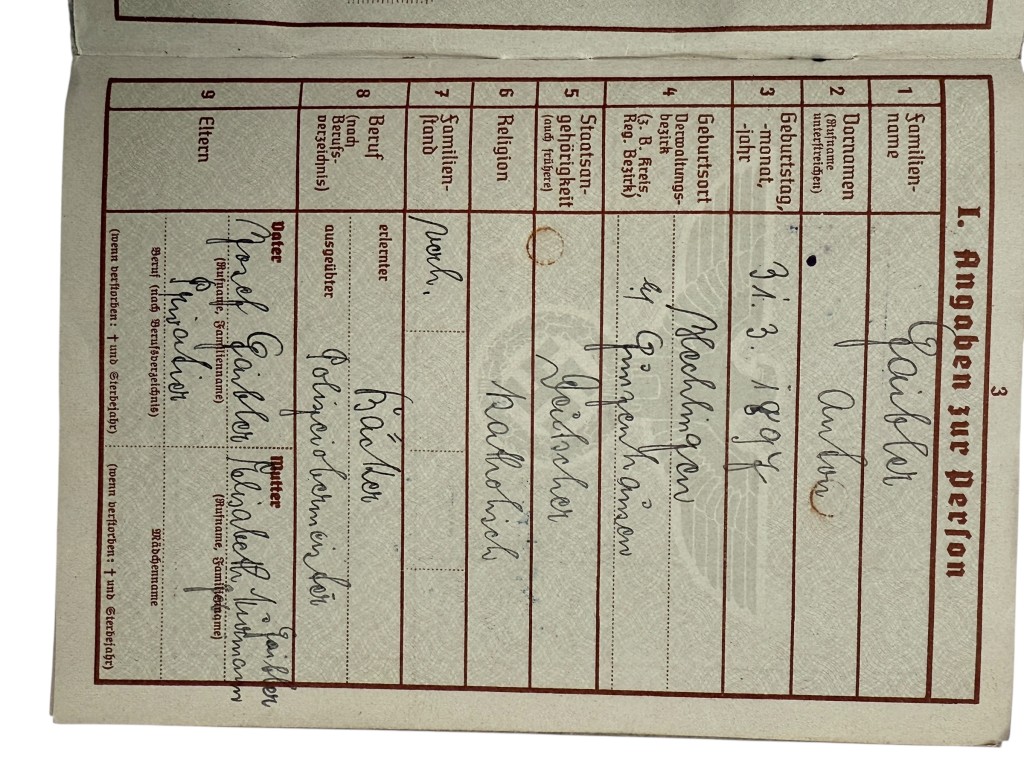 3
I. Angaben zur Person
1 Familien-
name
Gaibler
2 Vornamen
(Rufname
unterstreichen)
Anton
3 Geburtstag,
-monat,
-jahr
31. 3. 1897
4 Geburtsort
Verwaltungs-
bezirk
(z. B. Kreis,
Reg. Bezirk)
Günzenhausen
5 Staatsan-
gehörigkeit
(auch frühere)
Deutscher
6 Religion
katholisch
7 Familien-
stand
verh.
8 Beruf
(nach
Berufs-
verzeichnis)
erlernter
Bäcker
ausgeübter
9 Eltern
Vater
Josef Gaibler
(Rufname, Familienname)
Privatier
Beruf (nach Berufsverzeichnis)
(wenn verstorben: † und Sterbejahr)
Mutter
Gaibler
Elisabeth
(Rufname, Familienname)
Mädchenname
(wenn verstorben: † und Sterbejahr)